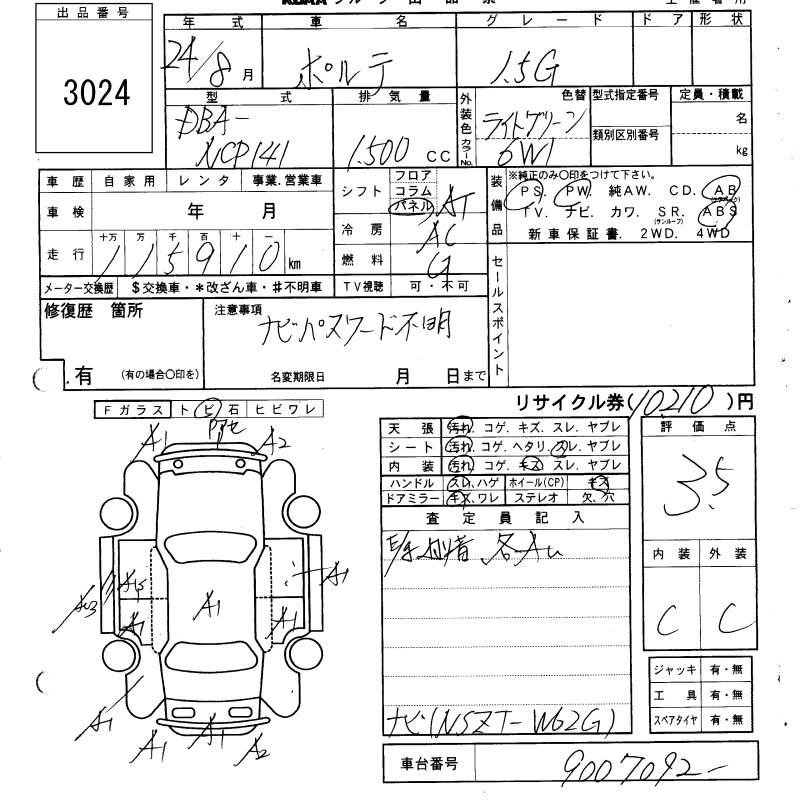 出品番号
3024
年式 車名 グレード ドア 形状
24/8月 ポルテ 1.5G
型式 排気量 外装色 カラーNo. 色替 型式指定番号 定員・積載
DBA-
NCP141 1,500cc ライトグリーン
6W1 類別区別番号 名
kg
車歴 自家用 レンタ 事業.営業車
シフト フロア コラム パネル AT
装備品 ※純正のみ〇印をつけて下さい。
PS. PW. 純AW. CD. AB(エアバック)
TV. ナビ. カワ. SR.(サンルーフ) ABS
新車保証書. 2WD. 4WD
車検 年 月
冷房 AC
走行 十万 万 千 百 十 一
115910km
燃料 G
メーター交換歴 $交換車・*改ざん車・#不明車 TV視聴 可・不可
セールスポイント
修復歴 箇所
注意事項
ナビパスワード不明
.有 (有の場合〇印を) 名変期限日 月 日まで
リサイクル券(10,210)円
Fガラス トビ石 ヒビワレ
A1 A2
A1 A1 A1 A1
A1 A1 A1 A2
天張 汚れ. コゲ. キズ. スレ. ヤブレ
シート 汚れ. コゲ. ヘタリ. スレ. ヤブレ
内装 汚れ. コゲ. キズ. スレ. ヤブレ
ハンドル スレ.ハゲ ホイール(CP) キズ
ドアミラー キズ.ワレ ステレオ 欠.穴
評価点
3.5
査定員記入
各AU
内装 外装
C C
ナビ(NSZT-W62G)
ジャッキ 有・無
工具 有・無
スペアタイヤ 有・無
車台番号 9007092-